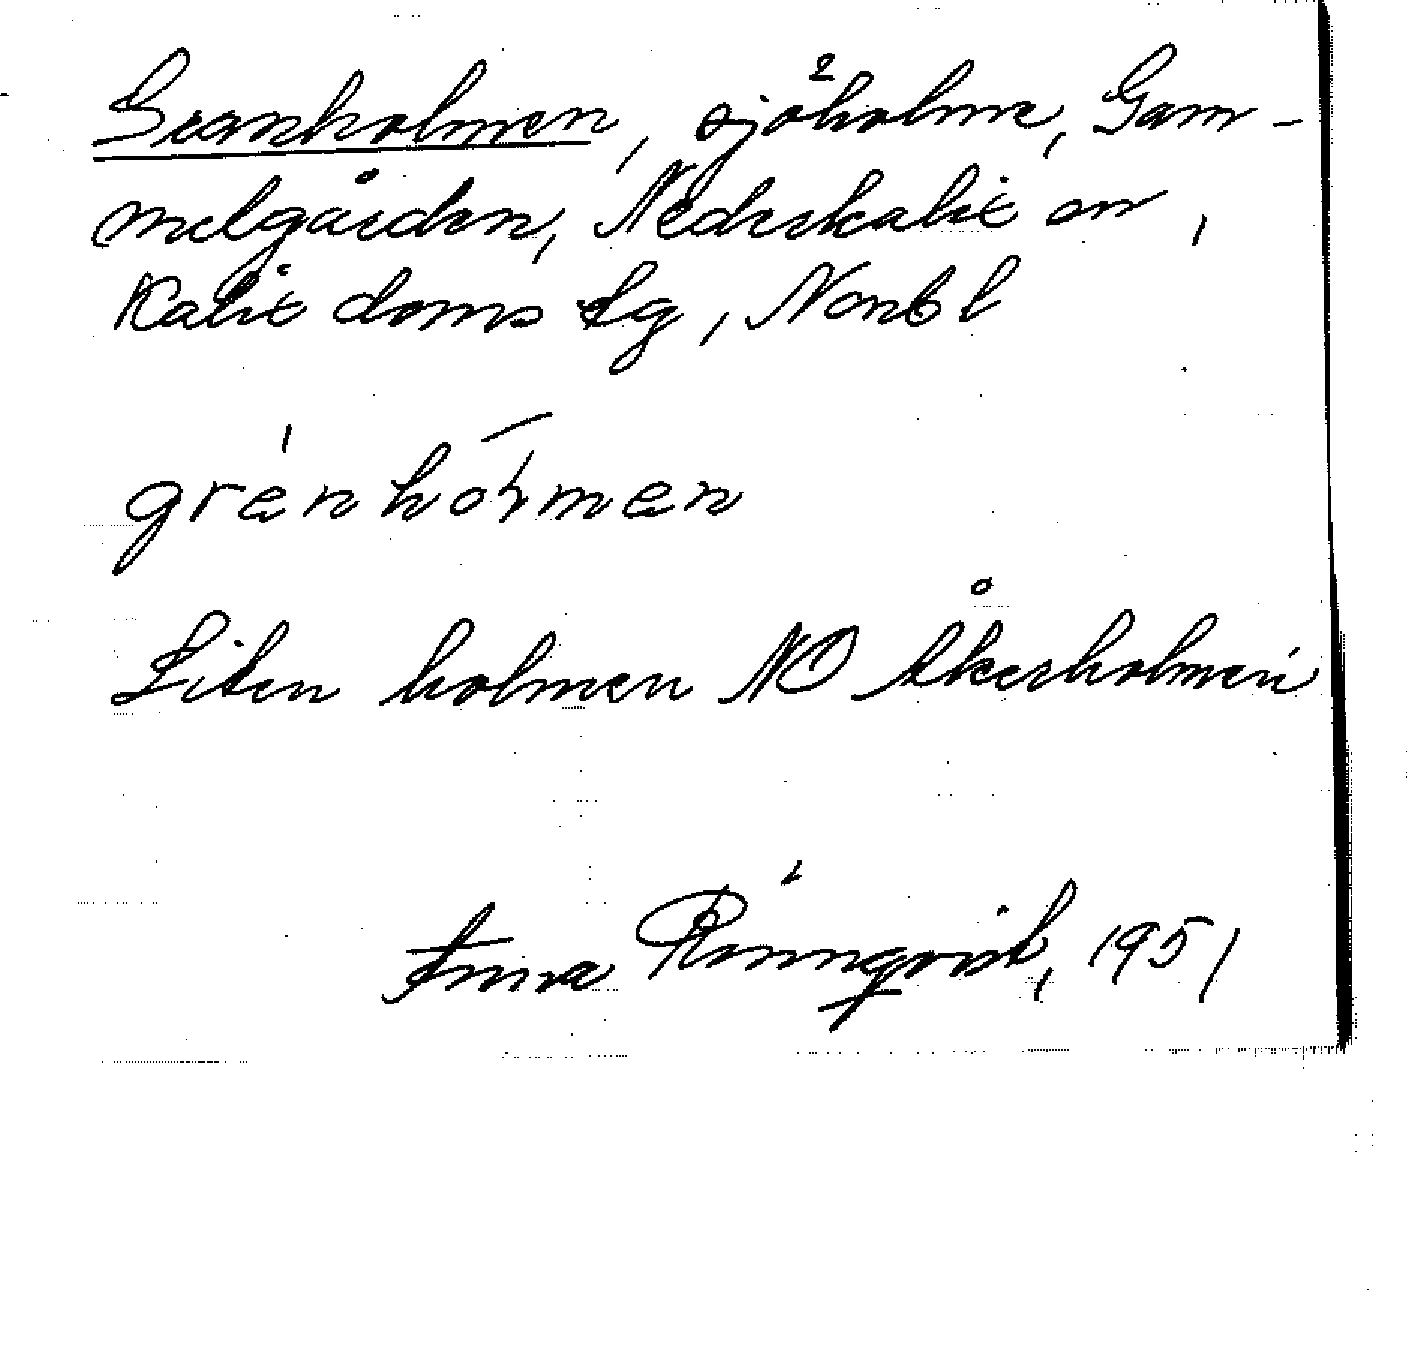 Granholmen, sjöholme, Gam-
melgården, Nederkalix sn,
Kalix doms tg, Nortbl
grenhoɫmen
Liten holmen NO Åkerholmen
Anna Rönnqvist, 1951